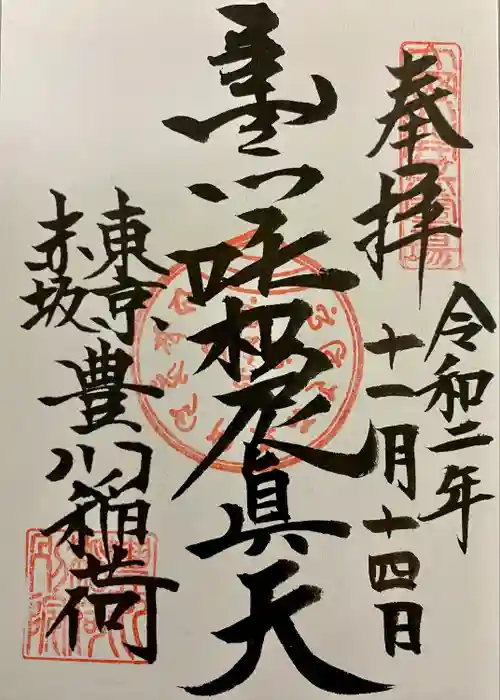 奉拝
令和二年
十一月十四日
吒枳尼眞天
東京
赤坂
豊川稲荷